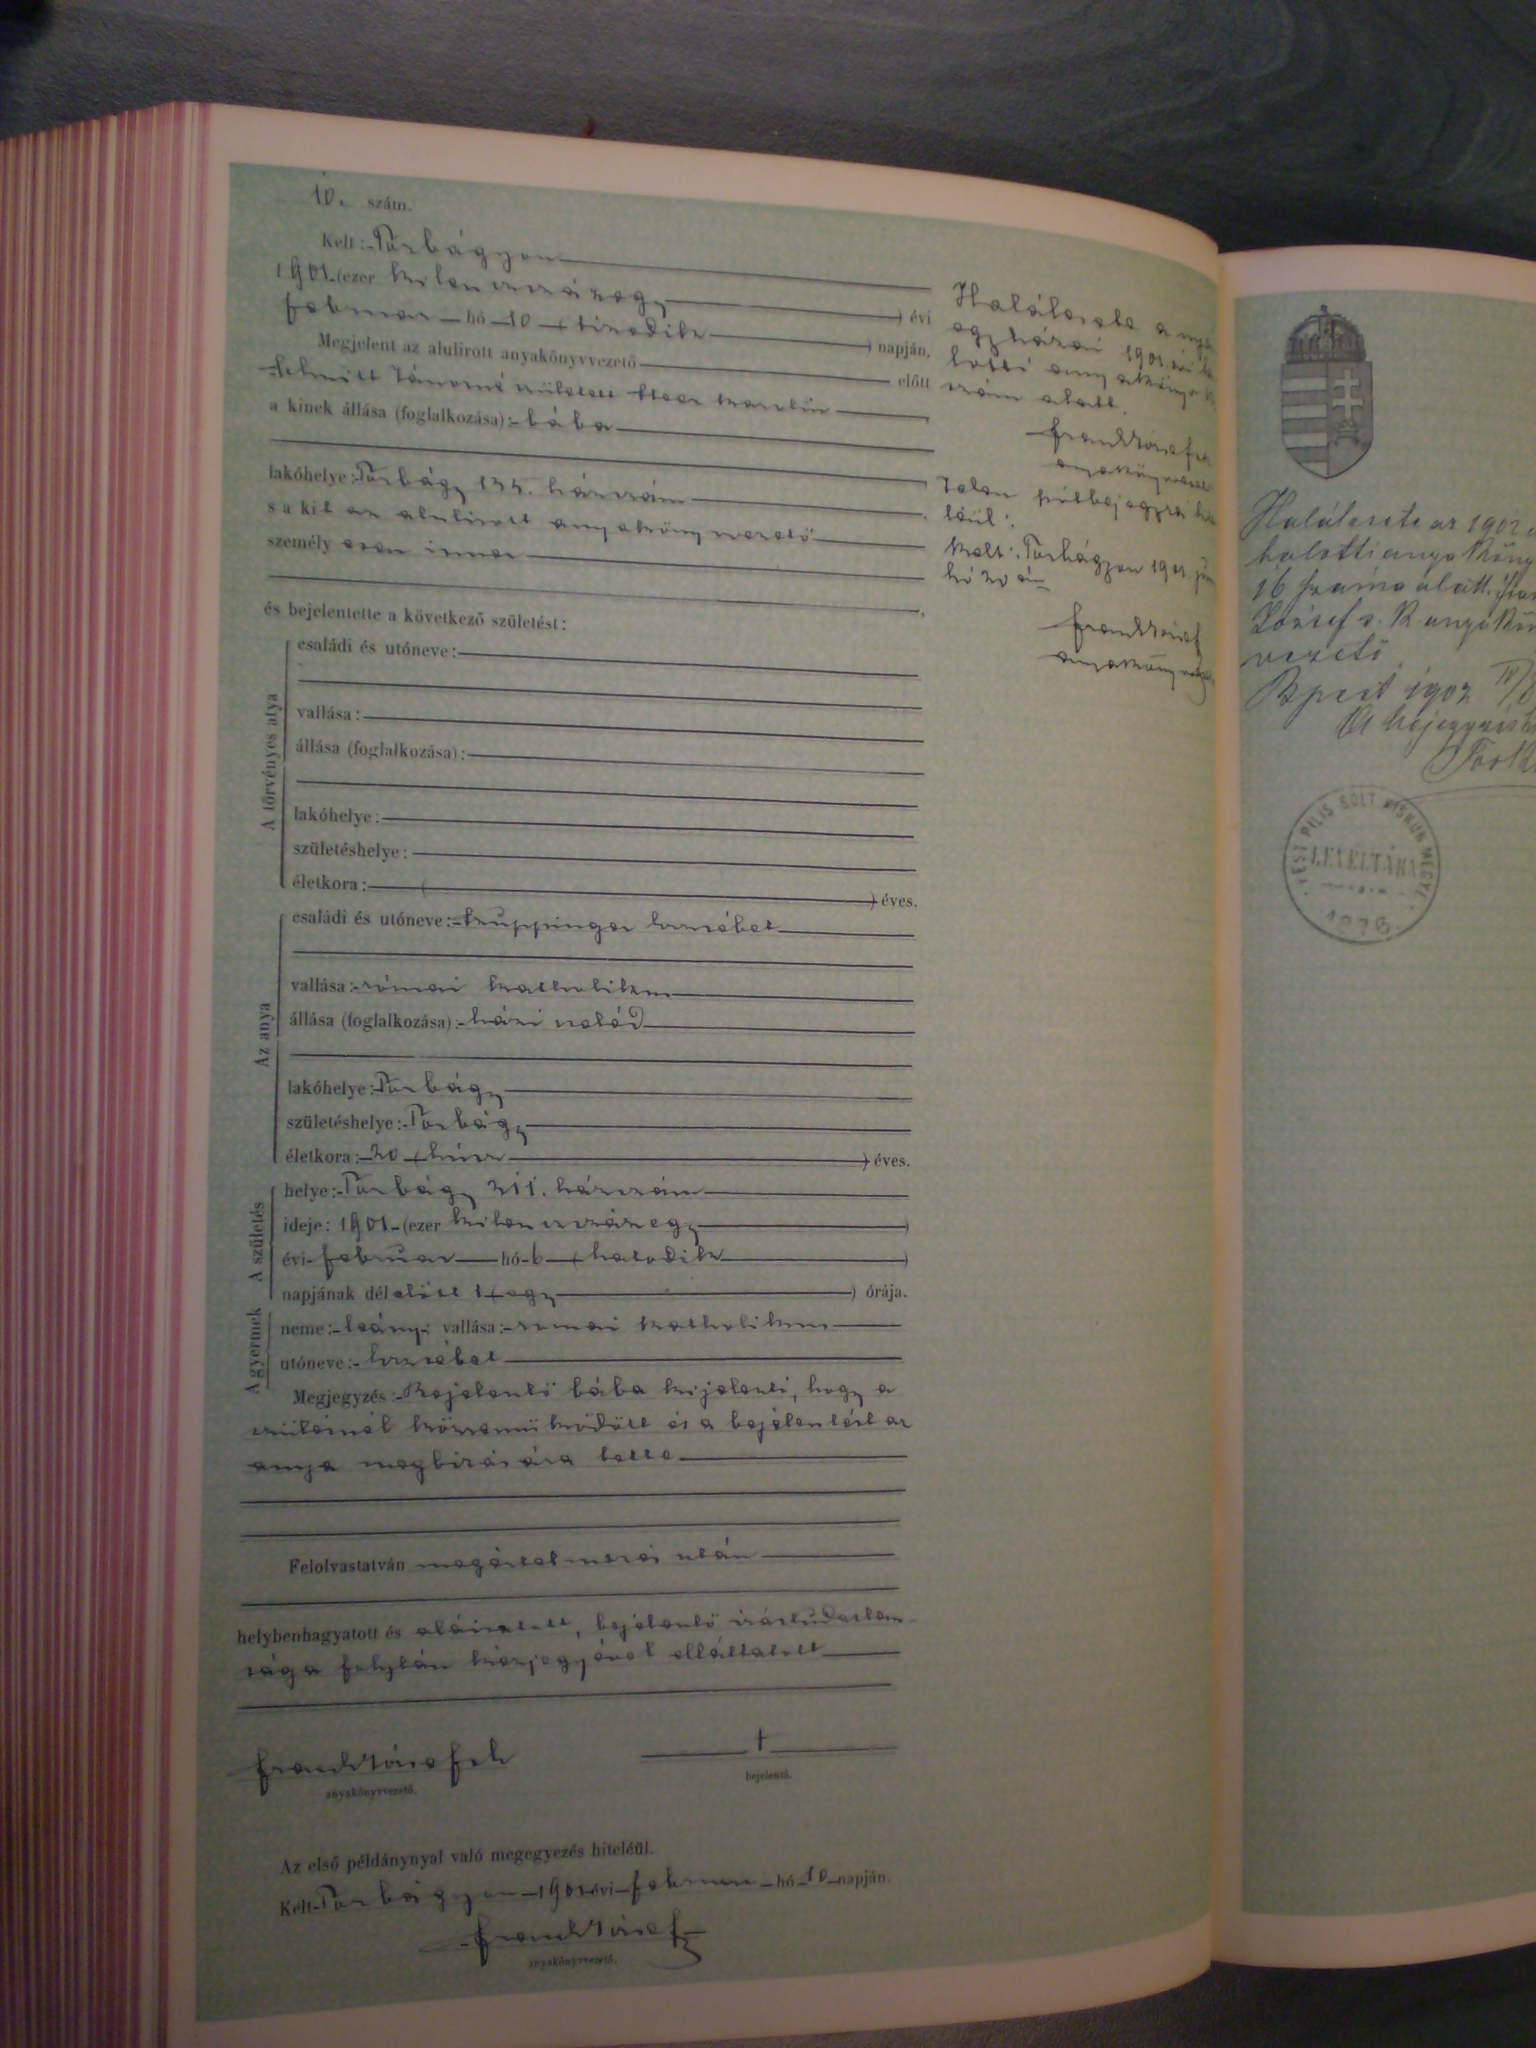 10. szám.
Kelt: Torbágyon
1901 (ezer kilenczszázegy) évi
februar hó 10 (tizedik) napján,
Megjelent az alulirott anyakönyvvezető előtt
Schmitt Jánosné született Karolin
a kinek állása (foglalkozása): bába
lakóhelye: Torbágy házszám
s a kit az alulirott anyakönyvvezető
személy esen ismer
és bejelentette a következő születést:
A törvényes atya
családi és utóneve:
vallása:
állása (foglalkozása):
lakóhelye:
születéshelye:
életkora: ( ) éves.
Az anya
családi és utóneve: Kruppinger Erzsébet
vallása: római katholikus
állása (foglalkozása): házi cseléd
lakóhelye: Torbágy
születéshelye: Torbágy
életkora: 20 (húsz) éves.
A születés
helye: Torbágy 211. házszám
ideje: 1901 (ezer kilenczszázegy)
évi februar hó 6 (hatodik)
napjának délelőtt 1 (egy) órája.
A gyermek
neme: leány: vallása: romai katholikus
utóneve: Erzsébet
Megjegyzés: Bejelentő bába kijelenti, hogy a
szülésnél közreműködött és a bejelentést az
anya megbizására tette
Felolvastatván megértelmezés után
helybenhagyatott és aláiratott, bejelentő irástudatlan
sága folytán kézjegyével elláttatott
Frank József h
anyakönyvvezető.
†
bejelentő.
Az első példánynyal való megegyezés hiteléül.
Kelt Torbágyon 1901 évi februar hó 10 napján.
Frank József
anyakönyvvezető.
Halálesete a
egyházai 1901. évi
lotti anyakönyv
szám alatt.
Frank József
anyakönyvvezető
Jelen utólbejegyzés
léül:
Kelt: Torbágyon 1901
hó 20 án
Frank József
anyakönyv
Halálesete az 1902
halotti anyaköny
16 száma alatt.
József s. k. anyakön
vezető
Bpest 1902
A bejegyzés
PEST PILIS SOLT KISKUN MEGYE
LEVÉLTÁRA
1876